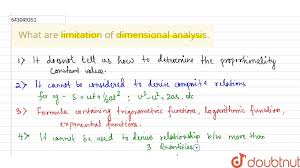 643049251
What are limitation of dimensional analysis.
1) It doesnot tell us how to determine the proportionality
constant value.
2) It cannot be considered to derive composite relations
for eg - S = ut + 1/2 at² ; v² - u² = 2as. etc
3) Formula containing trignometric functions, logarithmic function,
exponential functions.
4) It cannot be used to derive relationship b/w more than
3 quantities
doubtnut